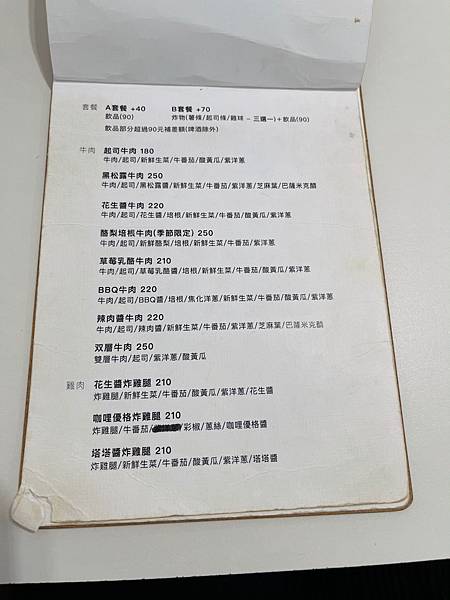 套餐 A套餐 +40 B套餐 +70
飲品(90) 炸物(薯條/起司條/雞球 – 三選一)+飲品(90)
飲品部分超過90元補差額(啤酒除外)
牛肉 起司牛肉 180
牛肉/起司/新鮮生菜/牛番茄/酸黃瓜/紫洋蔥
黑松露牛肉 250
牛肉/起司/黑松露醬/新鮮生菜/牛番茄/紫洋蔥/芝麻葉/巴薩米克醋
花生牛肉 220
牛肉/起司/花生醬/培根/新鮮生菜/牛番茄/酸黃瓜/紫洋蔥
酪梨培根牛肉(季節限定) 250
牛肉/起司/新鮮酪梨/培根/新鮮生菜/牛番茄/紫洋蔥
草莓乳酪牛肉 210
牛肉/起司/草莓乳酪醬/培根/新鮮生菜/牛番茄/酸黃瓜/紫洋蔥
BBQ牛肉 220
牛肉/起司/BBQ醬/培根/焦化洋蔥/新鮮生菜/牛番茄/酸黃瓜/紫洋蔥
辣肉醬牛肉 220
牛肉/起司/辣肉醬/新鮮生菜/牛番茄/紫洋蔥/芝麻葉/巴薩米克醋
双層牛肉 250
雙層牛肉/起司/紫洋蔥/酸黃瓜
雞肉 花生醬炸雞腿 210
炸雞腿/新鮮生菜/牛番茄/酸黃瓜/紫洋蔥/花生醬
咖哩優格炸雞腿 210
炸雞腿/牛番茄/彩椒/蔥絲/咖哩優格醬
塔塔醬炸雞腿 210
炸雞腿/新鮮生菜/牛番茄/酸黃瓜/紫洋蔥/塔塔醬